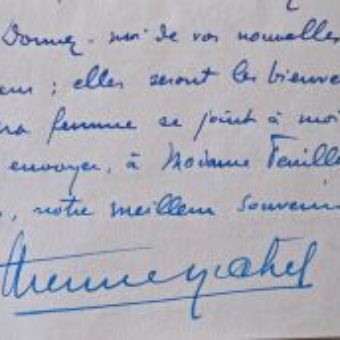 Donnez-moi de vos nouvelles
; elles seront les bienve
femme se joint à moi
envoyer, à Madame Feuille
, notre meilleur souvenir